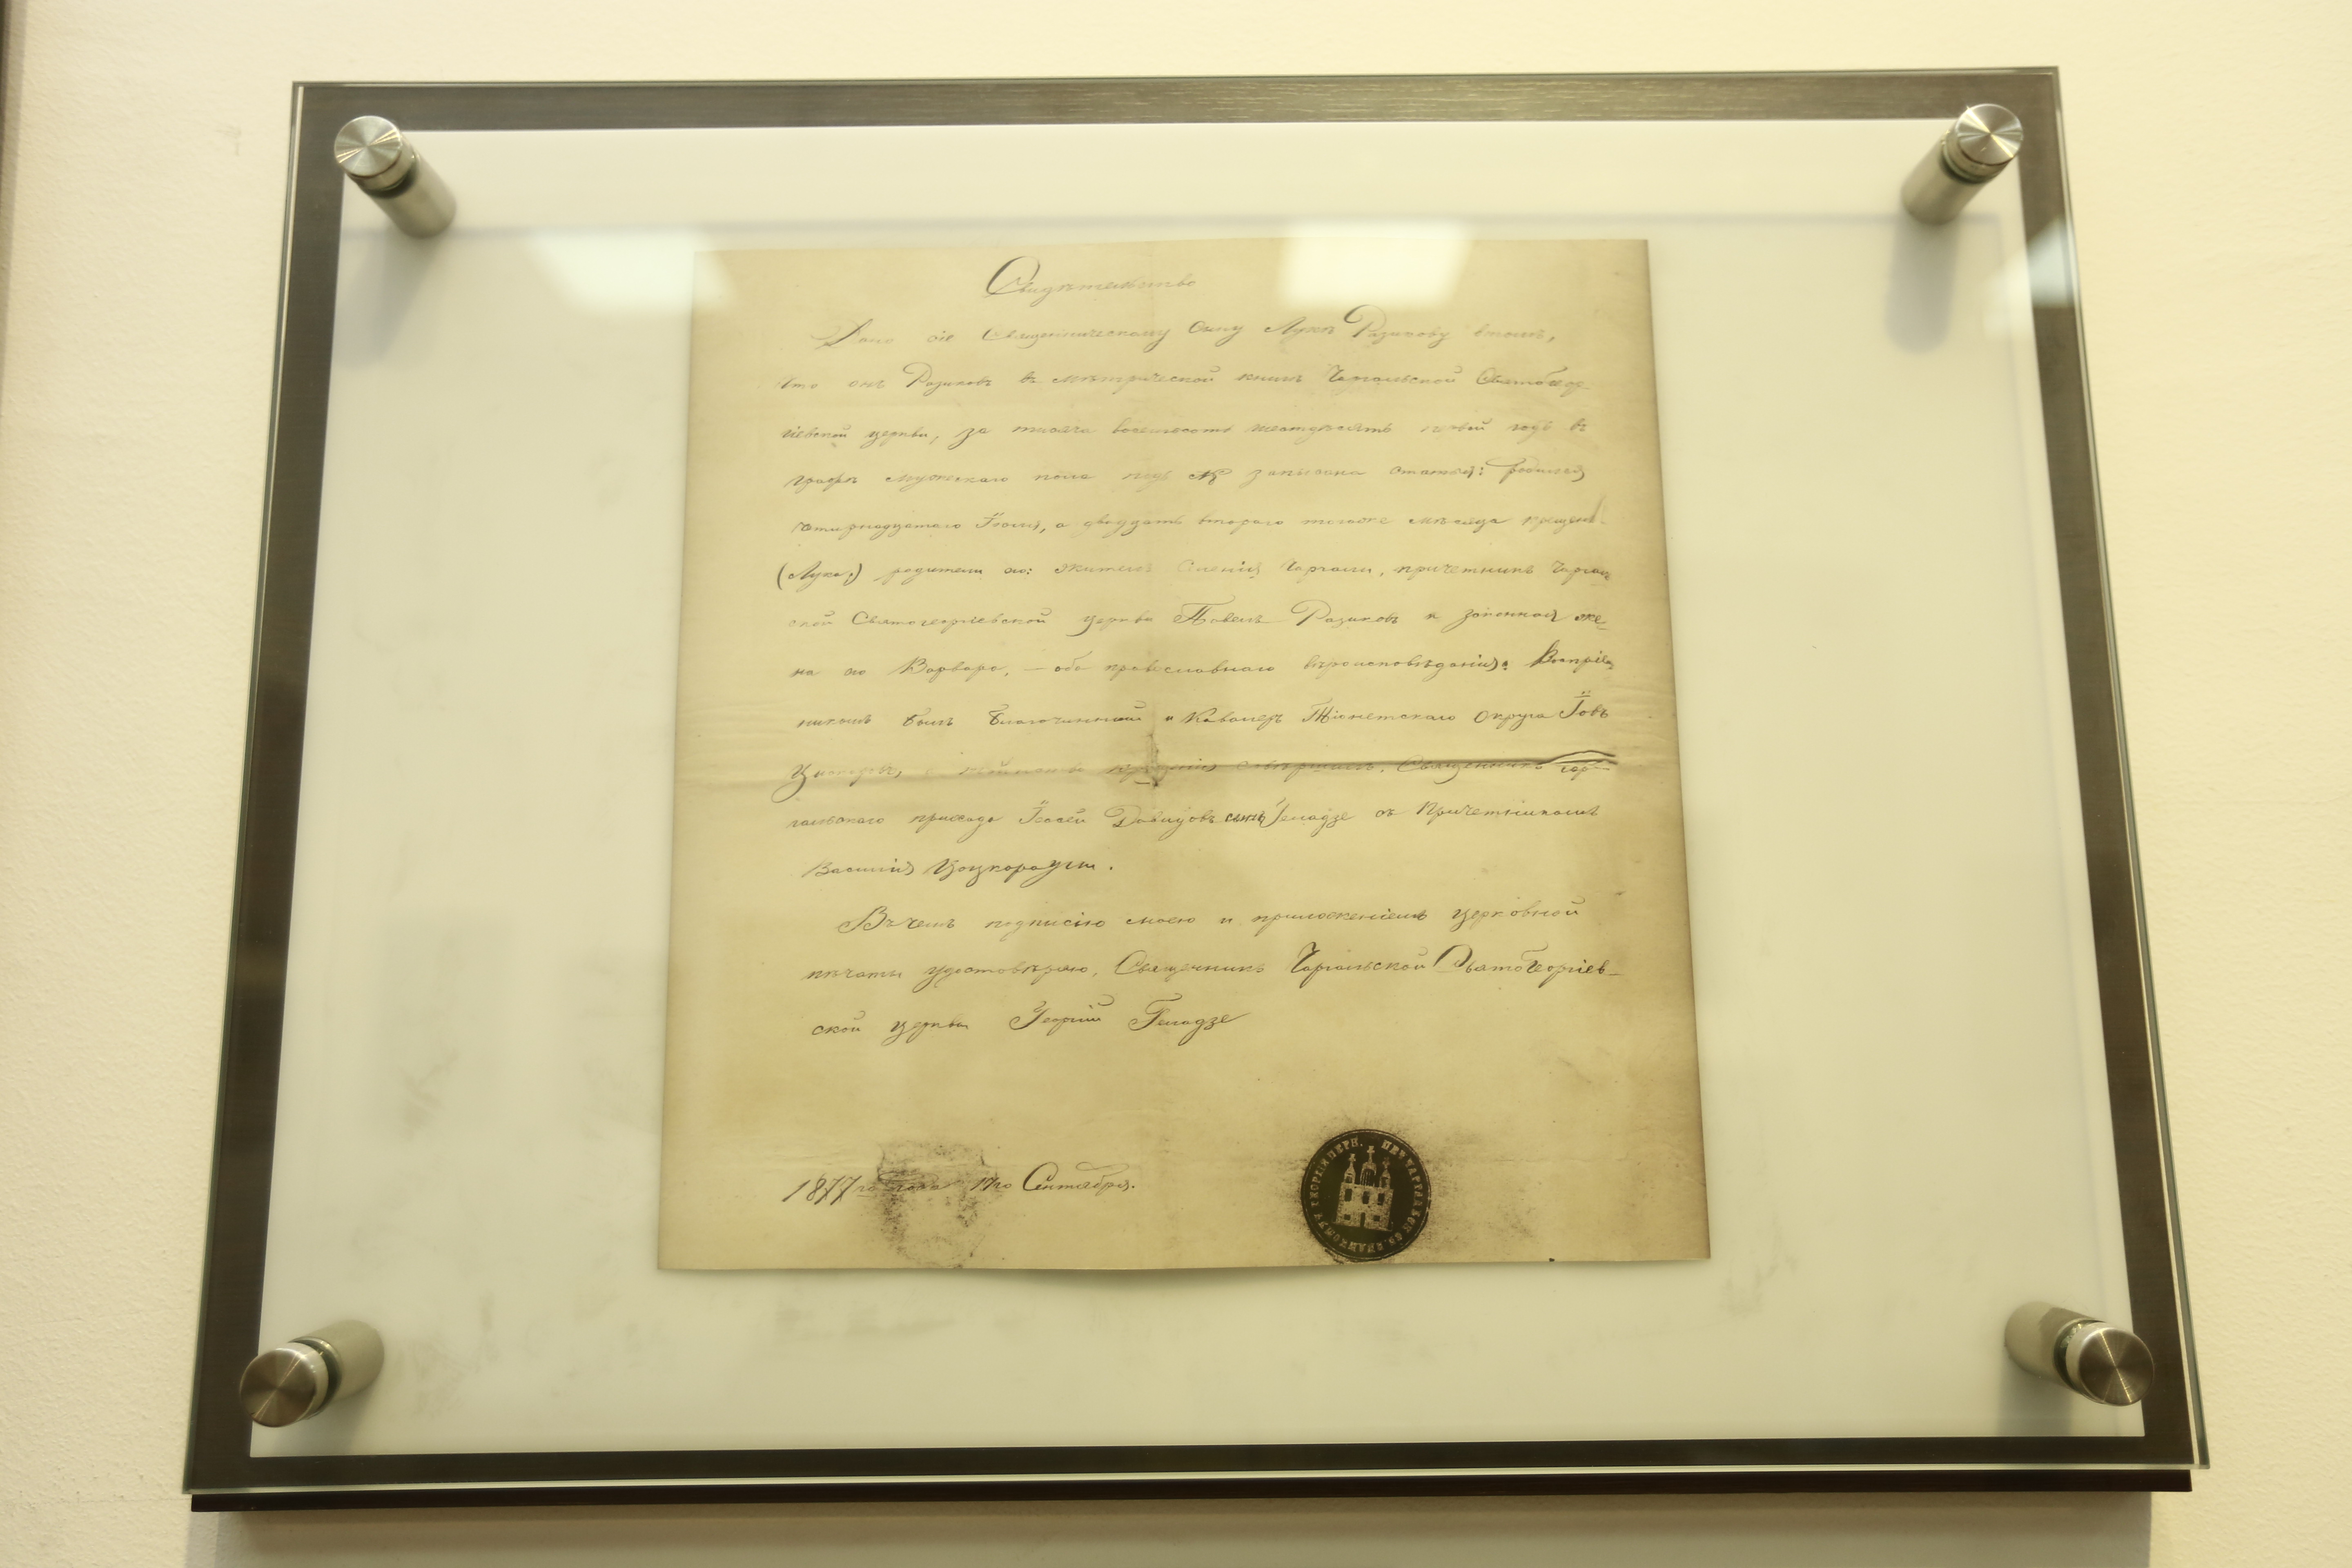 Свидѣтельство
Дано сіе Священническому сыну Лукѣ Разикову втомъ,
что онъ Разиковъ въ мѣтрической книгѣ Чаргальской СвятоГеор-
гіевской церкви, за тисяча восемсотъ шестдесятъ первый годъ въ
графѣ мужескаго пола подъ записана статья: родился
четирнадцетаго Іюля, а двадцать втораго тогоже мѣсяца крещен
(Лука,) родители его: жителъ Сѣленія Чаргали, причетникъ Чаргал
ской Святогеоргіевской церкви Павелъ Разиковъ и законная же-
на его Варвара, — оба православнаго вѣроисповѣданія; Воспріем
никомъ билъ Благочинний и Кавалеръ Тіонетскаго Округа Іовъ
совѣршилъ, Священникъ Чар-
гальскаго прихода Іосей Давидовъ сынъ Геладзе съ Причетникомъ
Василія
Въчемъ подписію моею и приложеніемъ церковной
пѣчати удостовѣряю, Священникъ Чаргальской СвятоГеоргіев-
ской церкви Георгій Геладзе
1877 го года 17го Сентября.